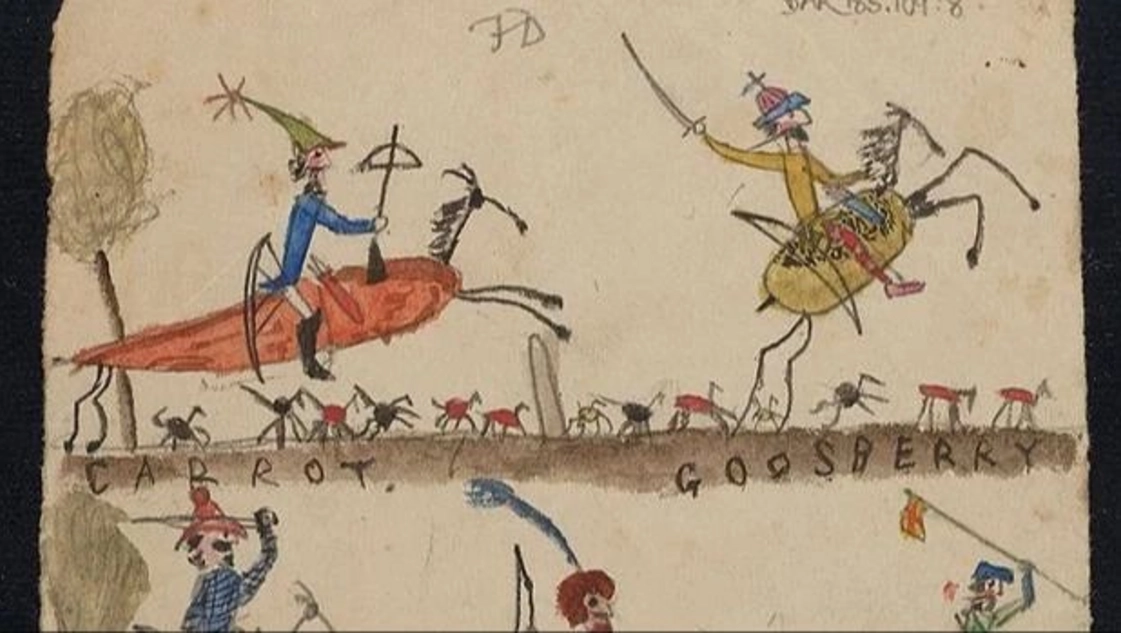 DAR 185.109:8.
FD
CARROT. GOOSBERRY